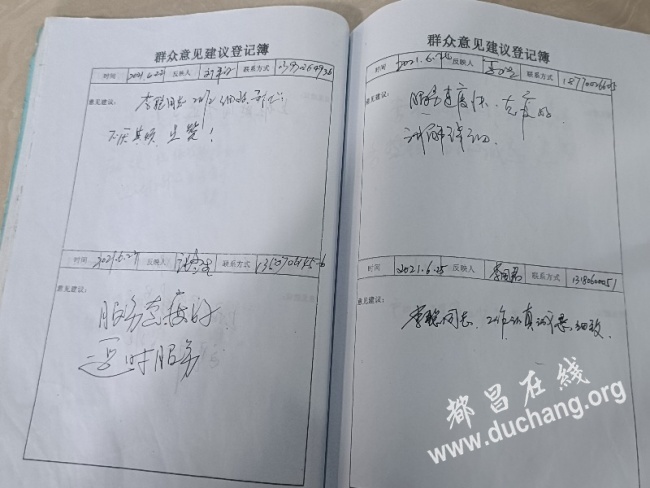 群众意见建议登记簿
时间 2021.6.22 反映人 联系方式
意见建议：
李聪同志工作细致、耐心
不厌其烦 点赞！
时间 2021.6.27 反映人 联系方式
意见建议：
服务态度好
延时服务
群众意见建议登记簿
时间 2021.6.24 反映人 联系方式
意见建议：
服务速度快、态度好
讲解详细.
时间 2021.6.25 反映人 联系方式
意见建议：
李聪同志、工作认真诚恳细致
都昌在线
www.duchang.org